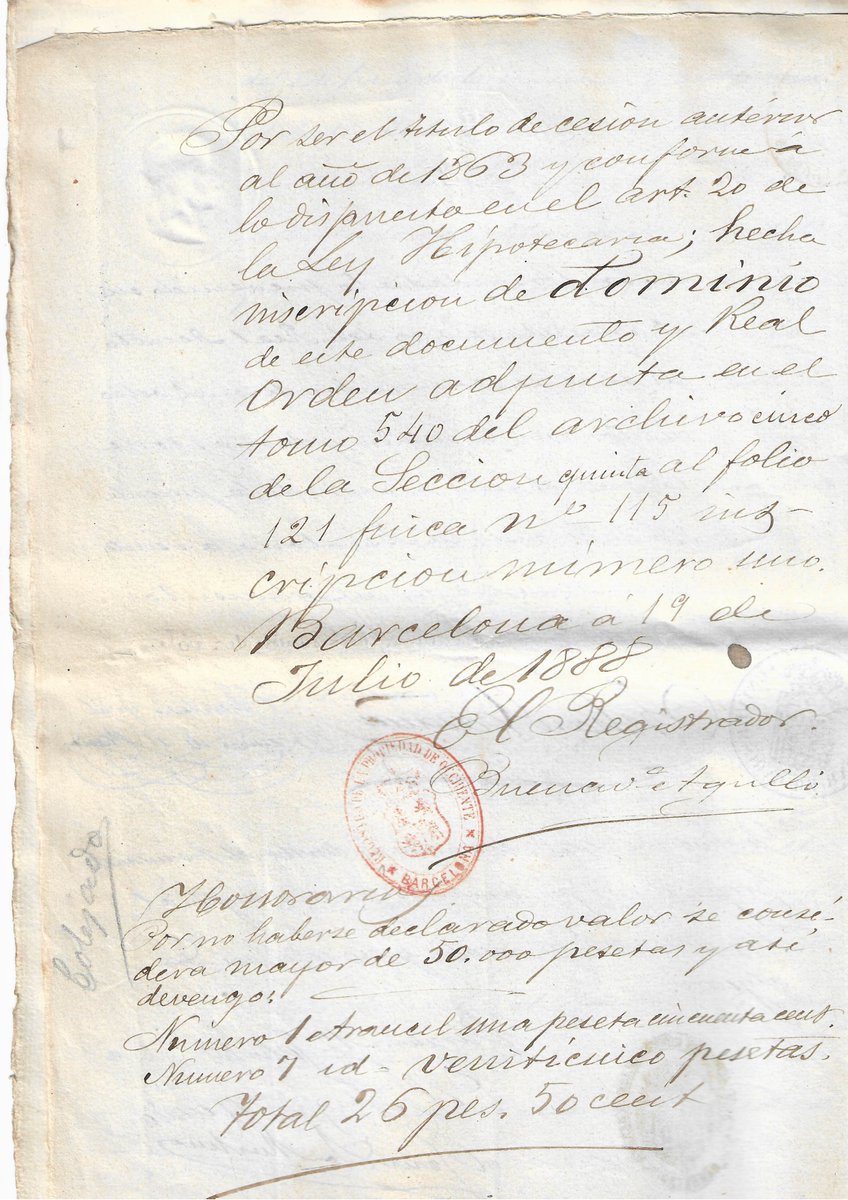 Por ser el titulo de cesion anterior
al año de 1863 y conforme á
lo dispuesto en el art. 20 de
la Ley Hipotecaria; hecha
inscripcion de dominio
de este documento y Real
Orden adjunta en el
tomo 540 del archivo cinco
de la Seccion quinta al folio
121 finca nº 115 ins-
cripcion número uno.
Barcelona á 19 de
Julio de 1888
El Registrador.
Buenavª Agulló
REGISTRO DE LA PROPIEDAD DE OCCIDENTE
* BARCELONA *
Cotejado
Honorarios
Por no haberse declarado valor se consi-
dera mayor de 50.000 pesetas y asi
devengo:
Numero 1 Arancel una peseta cincuenta cent.
Numero 7 id - veinticinco pesetas.
Total 26 pes. 50 cent